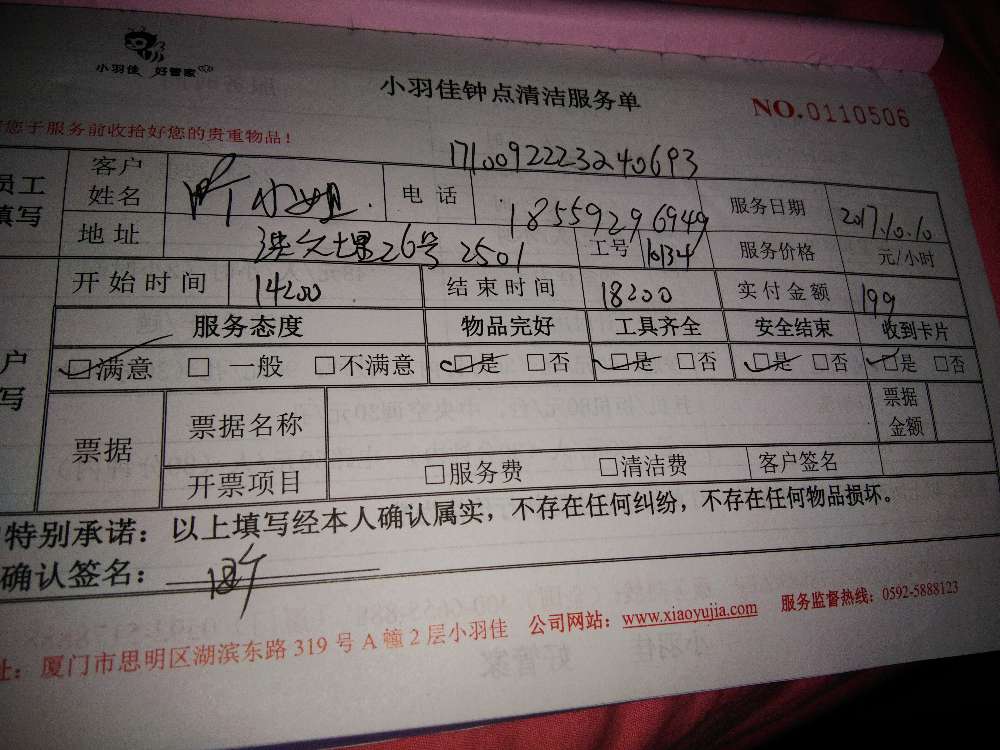 小羽佳 好管家
小羽佳钟点清洁服务单
NO.0110506
您于服务前收拾好您的贵重物品!
17100922232240693
员工填写 客户姓名 小姐 电话 18559296949 服务日期 2017.10.10
地址 26号 2501 工号 10134 服务价格 元/小时
开始时间 14200 结束时间 18200 实付金额 199
服务态度 物品完好 工具齐全 安全结束 收到卡片
户写 满意 一般 不满意 是 否 是 否 是 否 是 否
票据 票据名称 票据金额
开票项目 服务费 清洁费 客户签名
特别承诺：以上填写经本人确认属实，不存在任何纠纷，不存在任何物品损坏。
确认签名：
址：厦门市思明区湖滨东路319号A幢2层小羽佳 公司网站：www.xiaoyujia.com 服务监督热线：0592-5888123